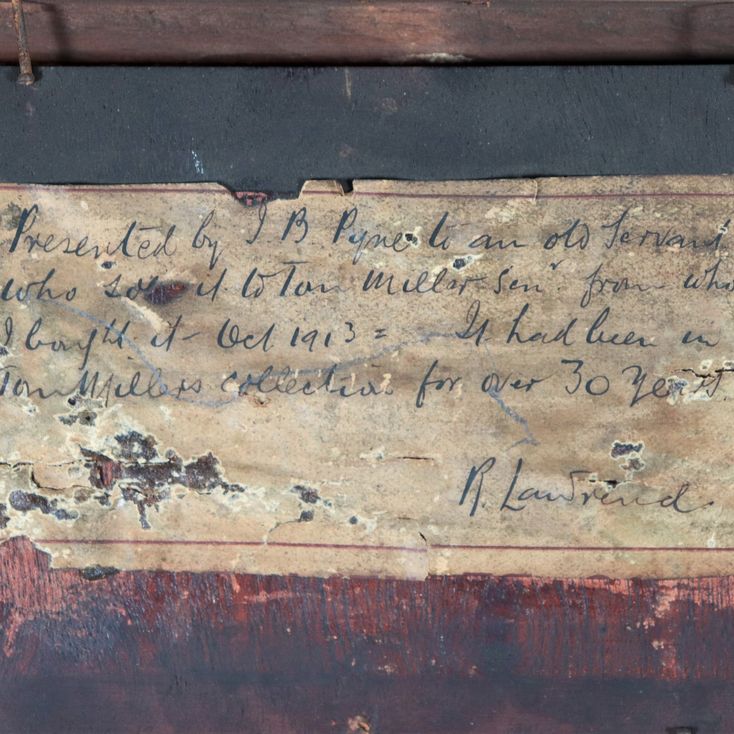 Presented by J B Pyne to an old Servant
who sold it to Tom Miller Senr from who
I bought it - Oct 1913 = It had been in
Tom Millers collection for over 30 Years.
R.